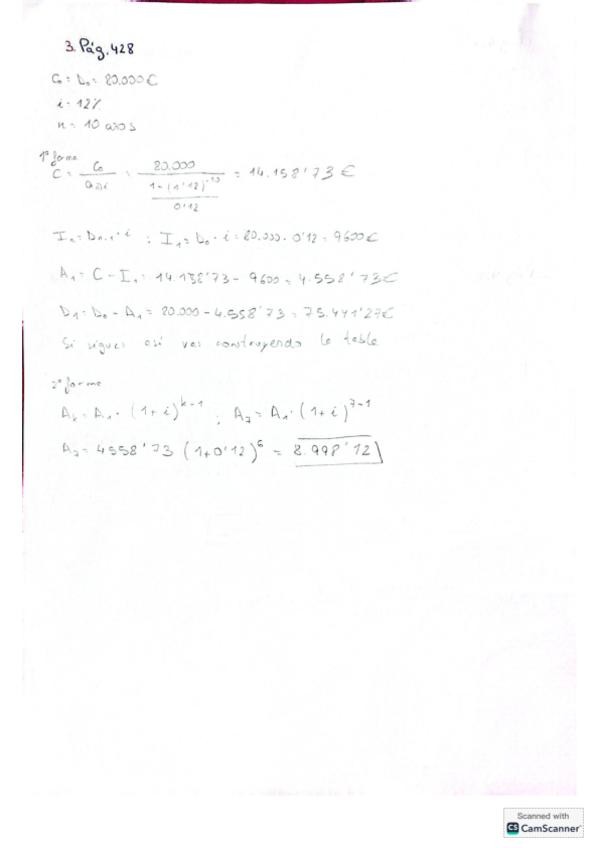 3. Pág. 428
C₀ = D₀ = 80.000 €
i = 12%
n = 10 años
1ª forma
C = C₀ / aₙ¬i = 80.000 / ((1 - (1'12)⁻¹⁰) / 0'12) = 14.158'73 €
Iₙ = Dₙ₋₁ · i ; I₁ = D₀ · i = 80.000 · 0'12 = 9600 €
A₁ = C - I₁ = 14.158'73 - 9600 = 4.558'73 €
D₁ = D₀ - A₁ = 80.000 - 4.558'73 = 75.441'27 €
Si sigues así vas construyendo la tabla
2ª forma
Aₖ = A₁ · (1 + i)ᵏ⁻¹ ; A₇ = A₁ · (1 + i)⁷⁻¹
A₇ = 4558'73 (1+0'12)⁶ = 8.998'12
Scanned with
CS CamScanner